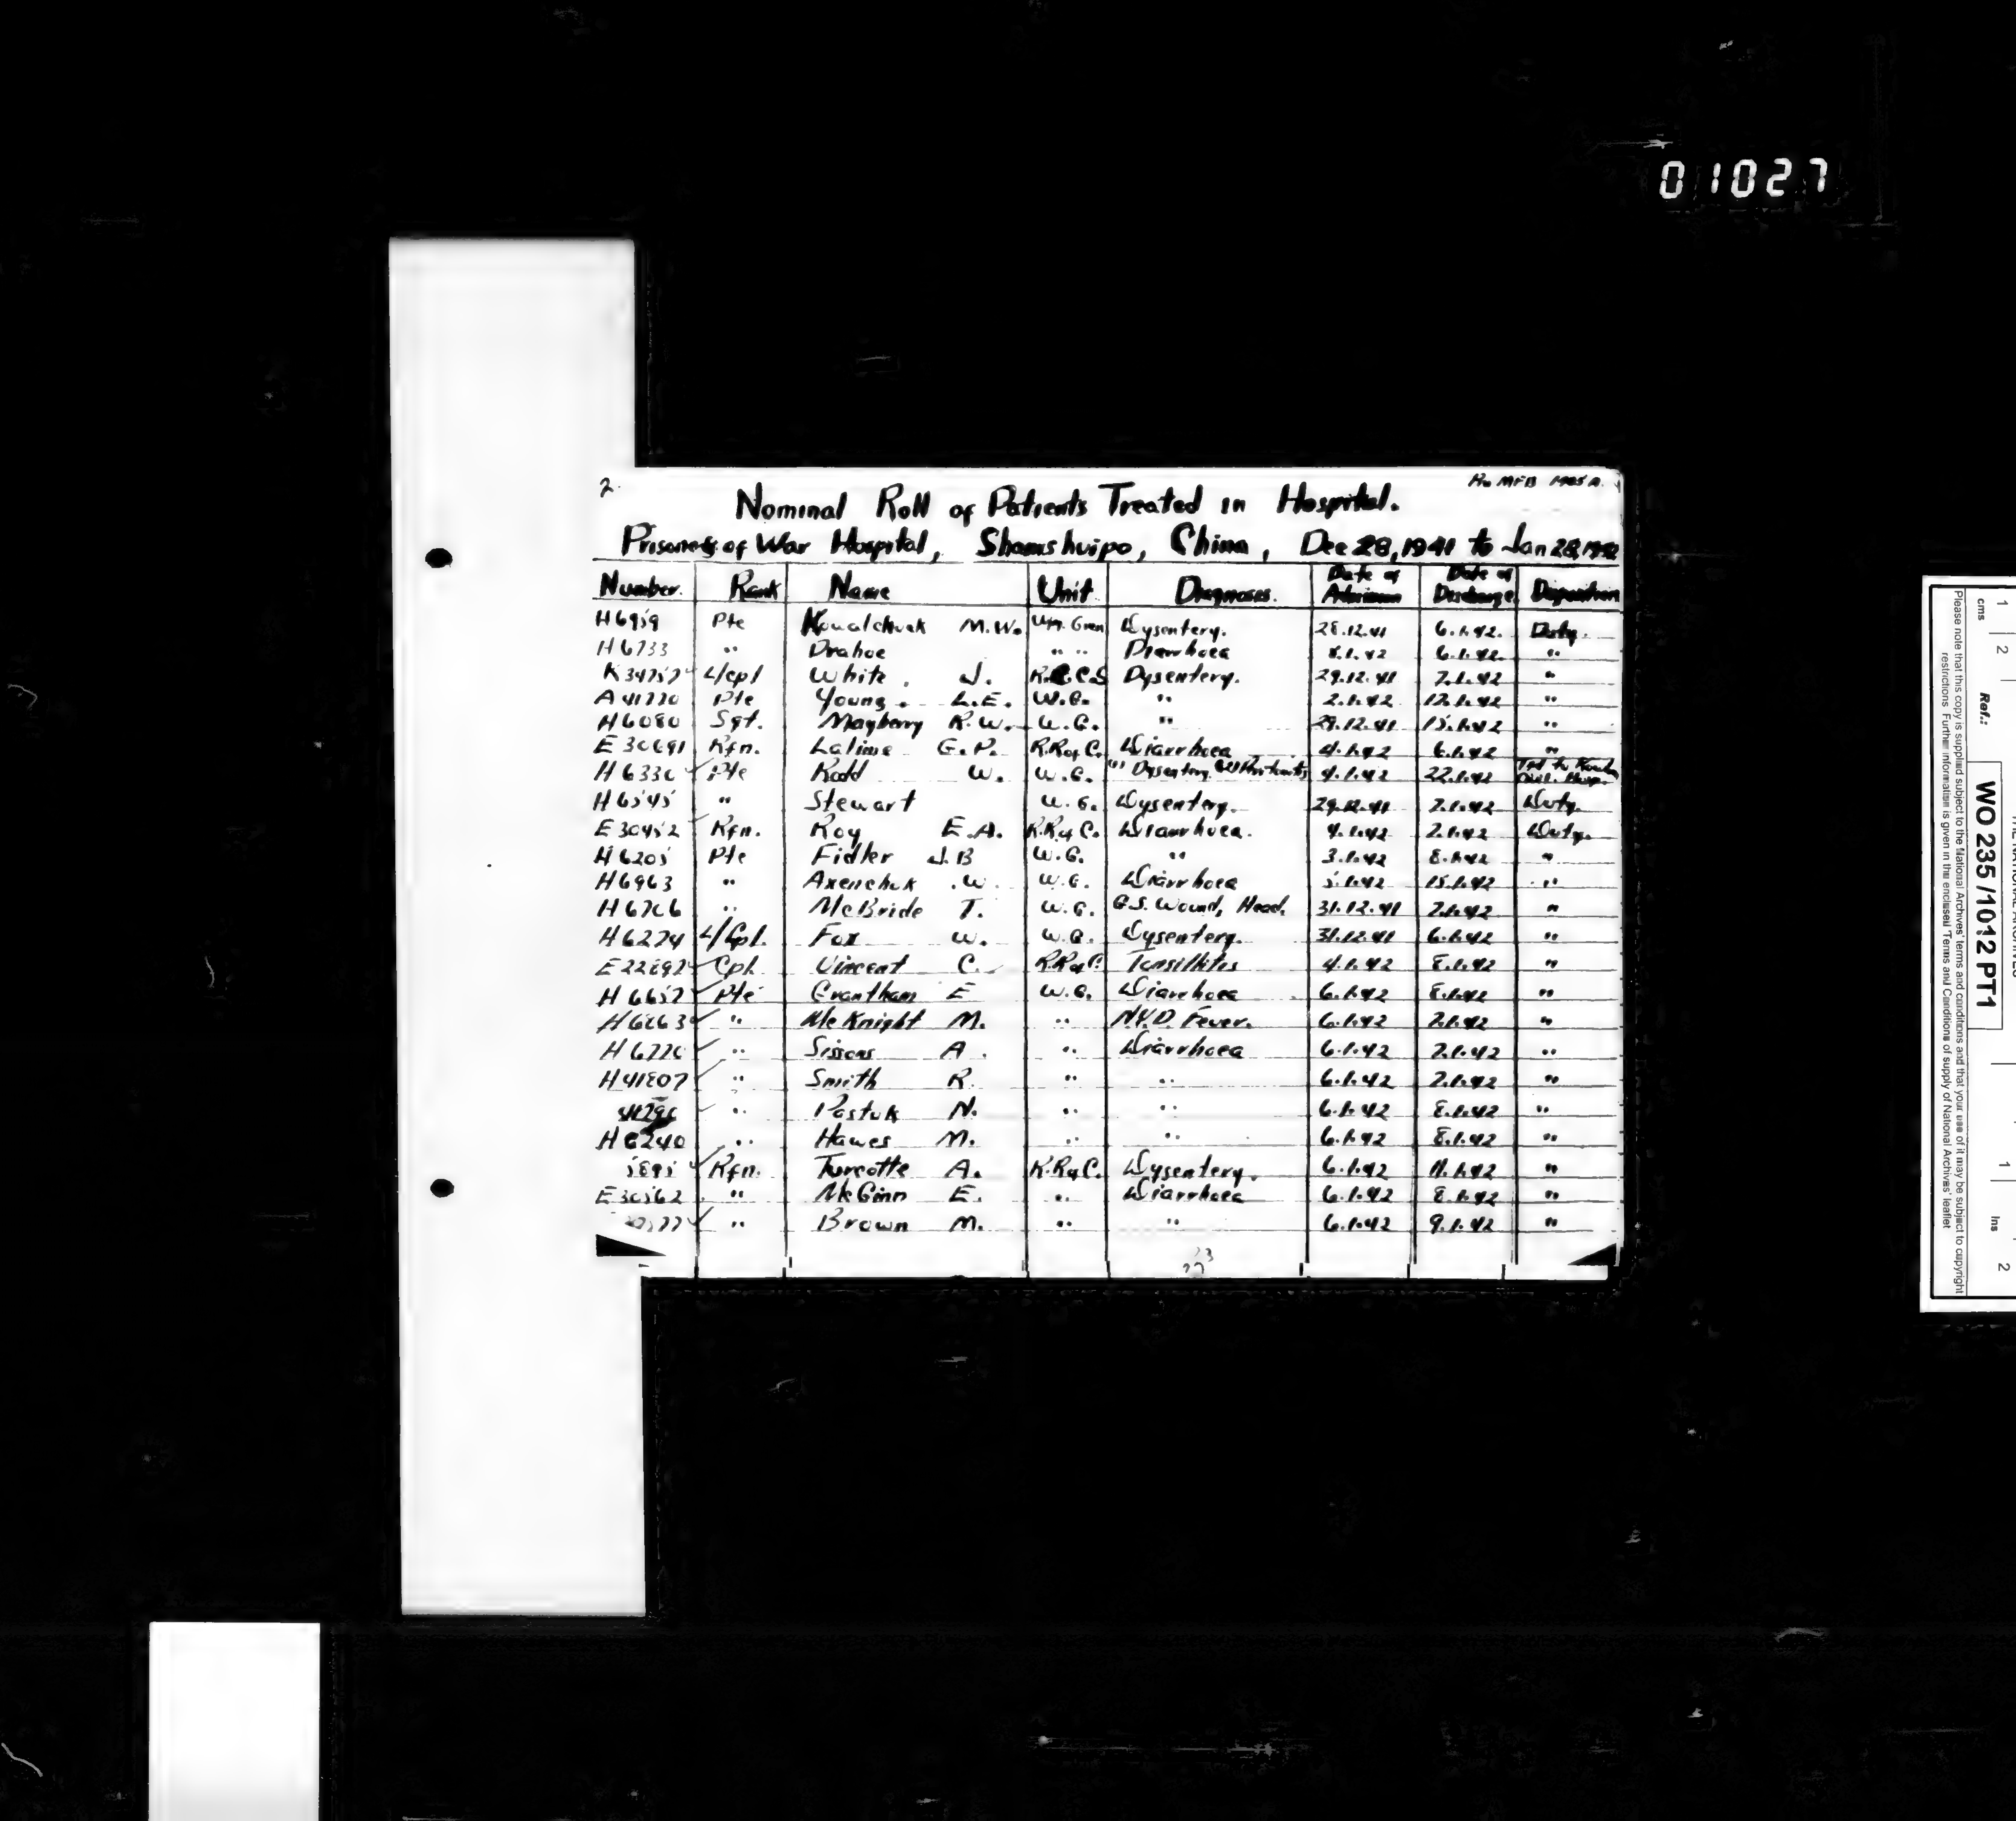 01027
2.
Nominal Roll of Patients Treated in Hospital.
Prisoners of War Hospital, Shamshuipo, China, Dec 28, 1941 to Jan 28, 1942
Number. Rank Name Unit Diagnoses. Date of Admission Date of Discharge Disposition
H6959 Pte Kowalchuk M.W. Wpg. Gren Dysentery. 28.12.41 6.1.42. Duty.
H6733 " Drahoe " " Diarrhoea 6.1.42. "
L/cpl White. J. R.C.C.S Dysentery. 29.12.41 7.1.42 "
Pte Young. L.E. W.G. " 2.1.42 12.1.42 "
H6080 Sgt. Mayberry R.W. W.G. " 29.12.41 15.1.42 "
E30691 Rfn. Latime G.P. R.R of C. Diarrhoea 4.1.42 6.1.42 "
H6330 Pte Rodd W. W.G. (1) Dysentery 4.1.42 22.1.42
H6545 " Stewart W.G. Dysentery. 29.12.41 7.1.42 Duty.
E30452 Rfn. Roy E.A. R.R of C. Diarrhoea. 4.1.42 7.1.42 Duty.
H6205 Pte Fidler J.B W.G. " 3.1.42 8.1.42 "
H6963 " Axenchuk .W. W.G. Diarrhoea 5.1.42 15.1.42 "
H6706 " McBride T. W.G. G.S. Wound, Head. 31.12.41 7.1.42 "
H6274 L/Cpl. Fox W. W.G. Dysentery. 31.12.41 6.1.42 "
E22892 Cpl. Vincent C. R.R of C. Tonsillitis 4.1.42 8.1.42 "
H6657 Pte Grantham E W.G. Diarrhoea 6.1.42 8.1.42 "
H6863 " McKnight M. " N.Y.D. Fever. 6.1.42 7.1.42 "
H6770 " Sissons A. " Diarrhoea 6.1.42 7.1.42 "
H41807 " Smith R. " " 6.1.42 7.1.42 "
" Pastuk N. " " 6.1.42 8.1.42 "
H6240 " Hawes M. " " 6.1.42 8.1.42 "
Rfn. Turcotte A. R.R of C. Dysentery. 6.1.42 11.1.42 "
E30562 " McGinn E. " Diarrhoea 6.1.42 8.1.42 "
" Brown M. " " 6.1.42 9.1.42 "
23
cms 1 2
Ins 1 2
Ref.: WO 235 / 1012 PT1
Please note that this copy is supplied subject to the National Archives' terms and conditions and that your use of it may be subject to copyright
restrictions. Further information is given in the enclosed 'Terms and Conditions of supply of National Archives' leaflet